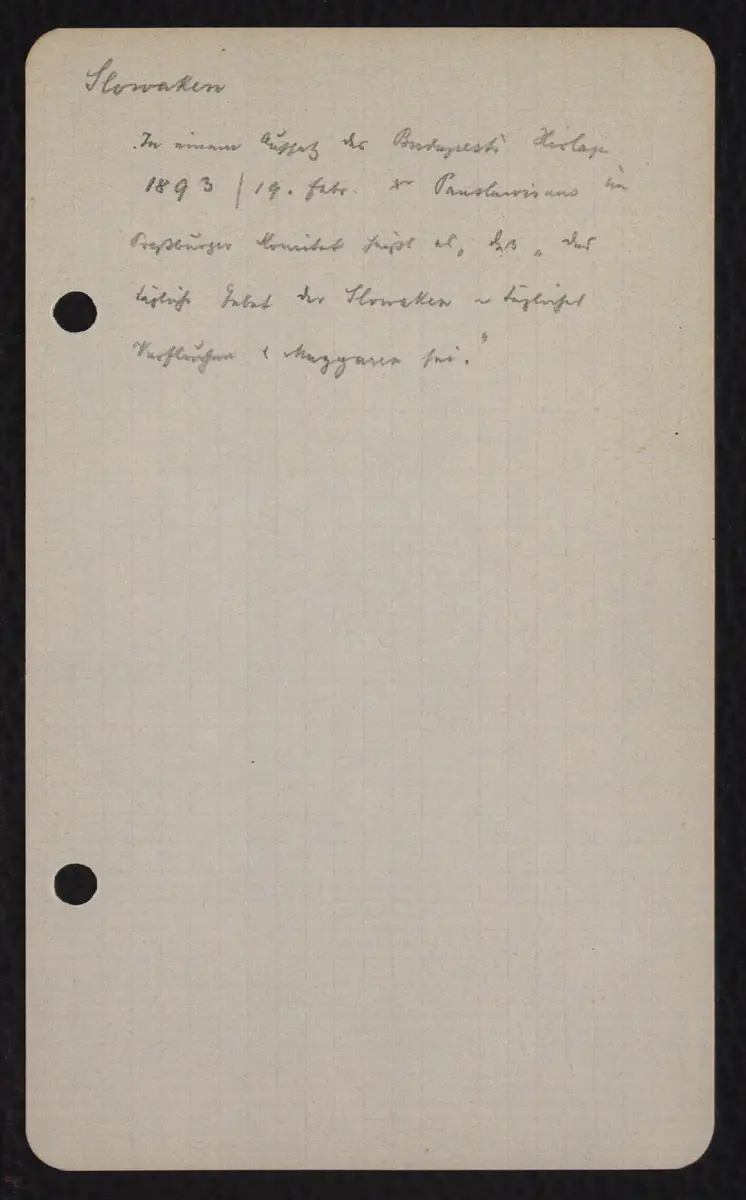 Slowaken
In einem Aufsatz des Budapesti Hirlap
1893 / 19. Febr. Panslawismus im
Preßburger Komitat heißt es, daß „das
tägliche Gebet der Slowaken tägliches
Verfluchen Magyaren sei."